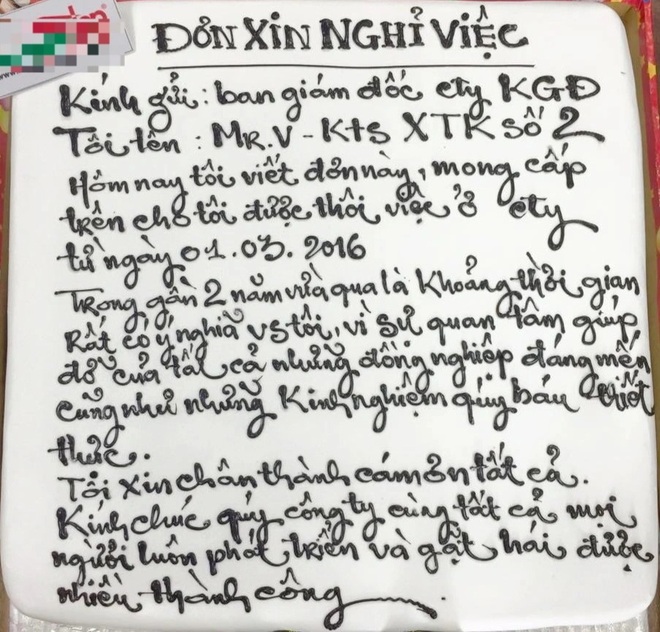 ĐƠN XIN NGHỈ VIỆC
Kính gửi: ban giám đốc cty KGĐ
Tôi tên : MR.V - Kts XTK Số 2
Hôm nay tôi viết đơn này, mong cấp
trên cho tôi được thôi việc ở cty
từ ngày 01.03.2016
Trong gần 2 năm vừa qua là Khoảng thời gian
Rất có ý nghĩa vs tôi, vì sự quan tâm giúp
đỡ của tất cả những đồng nghiệp đáng mến
cũng như những Kinh nghiệm quý báu thiết
thực.
Tôi xin chân thành cám ơn tất cả.
Kính chúc quý công ty cùng tất cả mọi
người luôn phát triển và gặt hái được
nhiều thành công